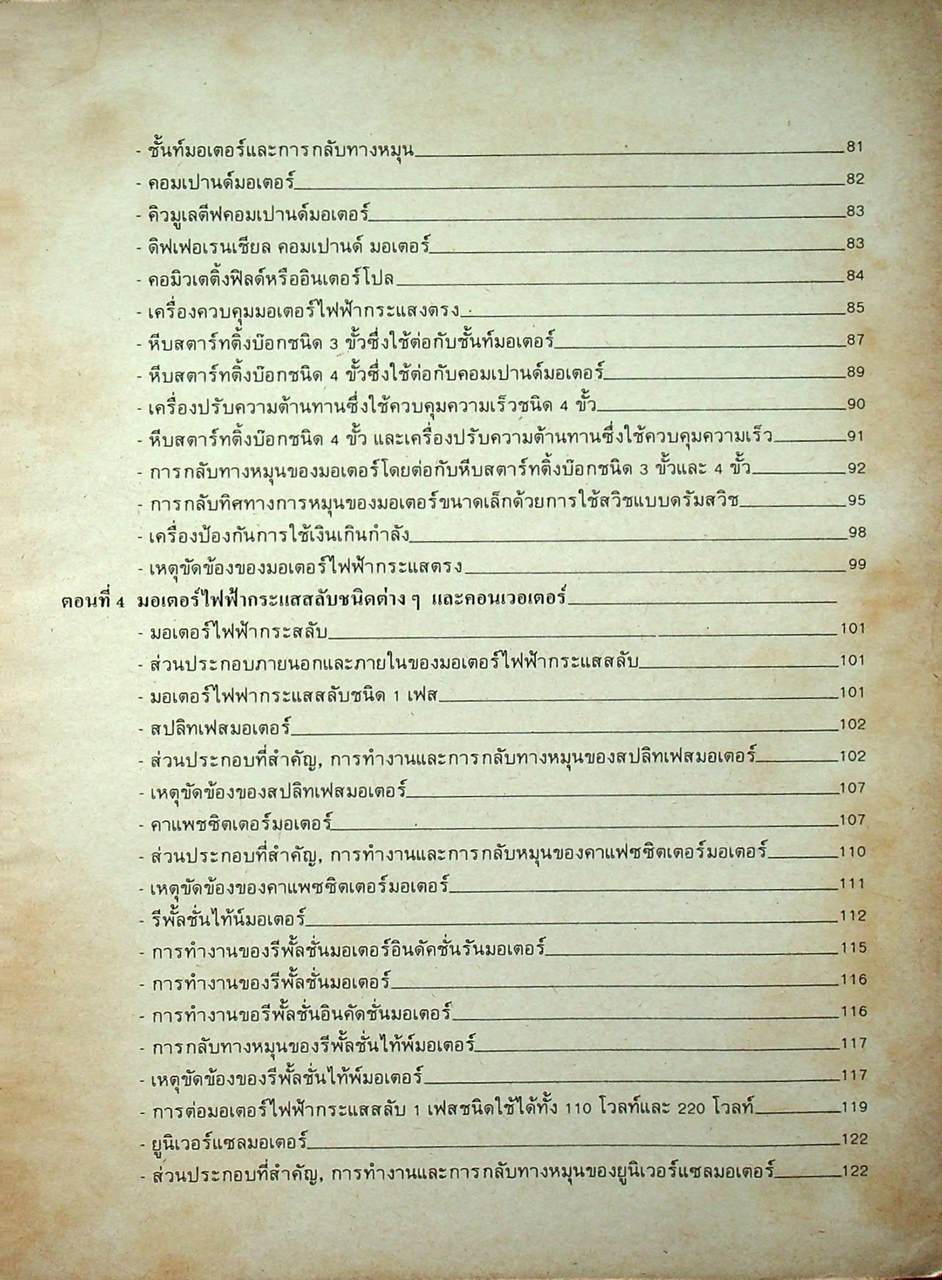 - ชั้นท์มอเตอร์และการกลับทางหมุน 81
- คอมเปานด์มอเตอร์ 82
- คิวมูเลตีฟคอมเปานด์มอเตอร์ 83
- ดิฟเฟอเรนเชียล คอมเปานด์ มอเตอร์ 83
- คอมิวเตติ้งฟิลด์หรืออินเตอร์โปล 84
- เครื่องควบคุมมอเตอร์ไฟฟ้ากระแสงตรง 85
- หีบสตาร์ทติ้งบ๊อกชนิด 3 ขั้วซึ่งใช้ต่อกับชั้นท์มอเตอร์ 87
- หีบสตาร์ทติ้งบ๊อกชนิด 4 ขั้วซึ่งใช้ต่อกับคอมเปานด์มอเตอร์ 89
- เครื่องปรับความต้านทานซึ่งใช้ควบคุมความเร็วชนิด 4 ขั้ว 90
- หีบสตาร์ทติ้งบ๊อกชนิด 4 ขั้ว และเครื่องปรับความต้านทานซึ่งใช้ควบคุมความเร็ว 91
- การกลับทางหมุนของมอเตอร์โดยต่อกับหีบสตาร์ทติ้งบ๊อกชนิด 3 ขั้วและ 4 ขั้ว 92
- การกลับทิศทางการหมุนของมอเตอร์ขนาดเล็กด้วยการใช้สวิชแบบดรัมสวิช 95
- เครื่องป้องกันการใช้เงินเกินกำลัง 98
- เหตุขัดข้องของมอเตอร์ไฟฟ้ากระแสตรง 99
ตอนที่ 4 มอเตอร์ไฟฟ้ากระแสสลับชนิดต่าง ๆ และคอนเวอเตอร์
- มอเตอร์ไฟฟ้ากระสลับ 101
- ส่วนประกอบภายนอกและภายในของมอเตอร์ไฟฟ้ากระแสสลับ 101
- มอเตอร์ไฟฟากระแสสลับชนิด 1 เฟส 101
- สปลิทเฟสมอเตอร์ 102
- ส่วนประกอบที่สำคัญ, การทำงานและการกลับทางหมุนของสปลิทเฟสมอเตอร์ 102
- เหตุขัดข้องของสปลิทเฟสมอเตอร์ 107
- คาแพชซิตเตอร์มอเตอร์ 107
- ส่วนประกอบที่สำคัญ, การทำงานและการกลับหมุนของคาแฟซซิตเตอร์มอเตอร์ 110
- เหตุขัดข้องของคาแพซซิตเตอร์มอเตอร์ 111
- รีพั้ลชั่นไท้น์มอเตอร์ 112
- การทำงานของรีพั้ลชั่นมอเตอร์อินดัคชั่นรันมอเตอร์ 115
- การทำงานของรีพั้ลชั่นมอเตอร์ 116
- การทำงานขอรีพั้ลชั่นอินคัดชั่นมอเตอร์ 116
- การกลับทางหมุนของรีพั้ลชั่นไท้พ์มอเตอร์ 117
- เหตุขัดข้องของรีพั้ลชั่นไท้พ์มอเตอร์ 117
- การต่อมอเตอร์ไฟฟ้ากระแสสลับ 1 เฟสชนิดใช้ได้ทั้ง 110 โวลท์และ 220 โวลท์ 119
- ยูนิเวอร์แซลมอเตอร์ 122
- ส่วนประกอบที่สำคัญ, การทำงานและการกลับทางหมุนของยูนิเวอร์แซลมอเตอร์ 122